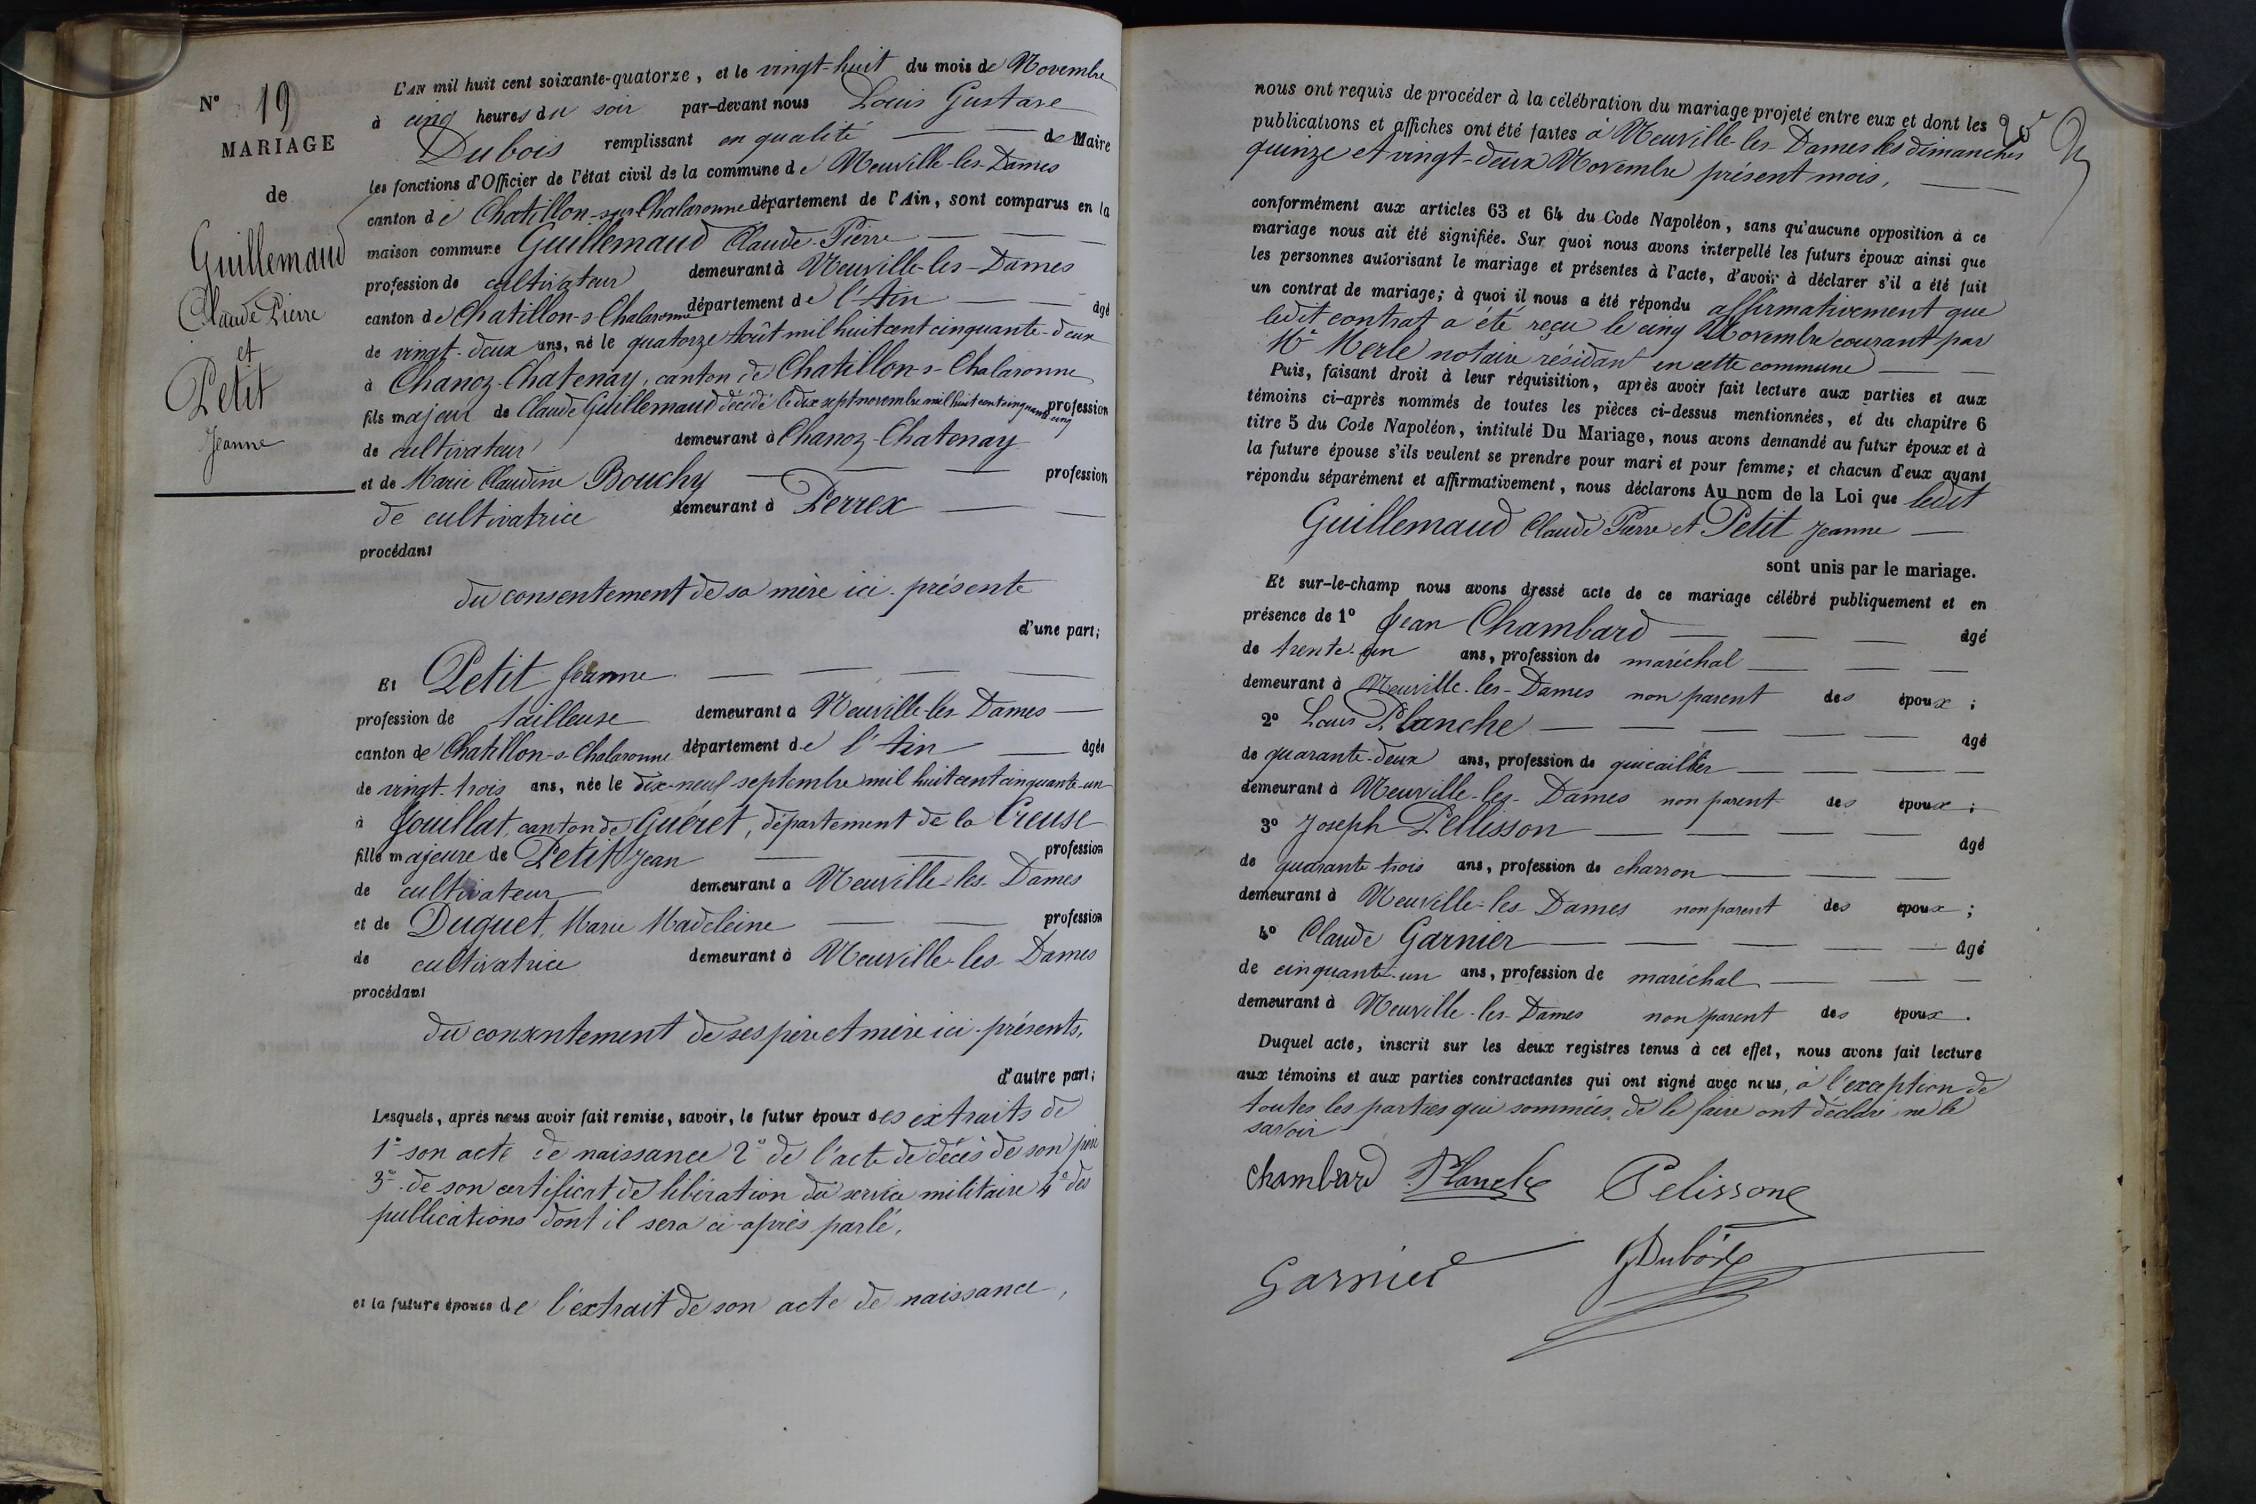 N° 19
MARIAGE
de
Guillemaud
Claude Pierre
et
Petit
Jeanne
L'AN mil huit cent soixante-quatorze, et le vingt-huit du mois de Novembre
à cinq heures du soir par-devant nous Louis Gustave
Dubois remplissant en qualité de Maire
les fonctions d'Officier de l'état civil de la commune de Neuville-les-Dames
canton de Chatillon-sur-Chalaronne département de l'Ain, sont comparus en la
maison commune Guillemaud Claude-Pierre
profession de cultivateur demeurant à Neuville-les-Dames
canton de Chatillon-s-Chalaronne département de l'Ain âgé
de vingt-deux ans, né le quatorze Août mil huit cent cinquante-deux
à Chanoz-Chatenay, canton de Chatillon-s-Chalaronne
fils majeur de Claude Guillemaud décédé le dix sept novembre mil huit cent cinquante cinq profession
de cultivateur demeurant à Chanoz-Chatenay
et de Marie Claudine Bouchy profession
de cultivatrice demeurant à Perrex
procédant
du consentement de sa mère ici présente
d'une part;
Et Petit Jeanne
profession de tailleuse demeurant à Neuville-les-Dames
canton de Chatillon-s-Chalaronne département de l'Ain âgée
de vingt-trois ans, née le dix-neuf septembre mil huit cent cinquante-un
à Jouillat, canton de Guéret, département de la Creuse
fille majeure de Petit Jean profession
de cultivateur demeurant à Neuville-les-Dames
et de Duquet, Marie Madeleine profession
de cultivatrice demeurant à Neuville-les-Dames
procédant
du consentement de ses père et mère ici présents,
d'autre part;
Lesquels, après nous avoir fait remise, savoir, le futur époux des extraits de
1° son acte de naissance 2° de l'acte de décès de son père
3° de son certificat de libération du service militaire 4° des
publications dont il sera ci-après parlé.
et la future épouse de l'extrait de son acte de naissance,
nous ont requis de procéder à la célébration du mariage projeté entre eux et dont les
publications et affiches ont été faites à Neuville-les-Dames les dimanches
quinze et vingt-deux Novembre présent mois,
conformément aux articles 63 et 64 du Code Napoléon, sans qu'aucune opposition à ce
mariage nous ait été signifiée. Sur quoi nous avons interpellé les futurs époux ainsi que
les personnes autorisant le mariage et présentes à l'acte, d'avoir à déclarer s'il a été fait
un contrat de mariage; à quoi il nous a été répondu affirmativement que
ledit contrat a été reçu le cinq Novembre courant par
Me Merle notaire résidant en cette commune
Puis, faisant droit à leur réquisition, après avoir fait lecture aux parties et aux
témoins ci-après nommés de toutes les pièces ci-dessus mentionnées, et du chapitre 6
titre 5 du Code Napoléon, intitulé Du Mariage, nous avons demandé au futur époux et à
la future épouse s'ils veulent se prendre pour mari et pour femme; et chacun d'eux ayant
répondu séparément et affirmativement, nous déclarons Au nom de la Loi que ledit
Guillemaud Claude Pierre et Petit Jeanne
sont unis par le mariage.
Et sur-le-champ nous avons dressé acte de ce mariage célébré publiquement et en
présence de 1° Jean Chambard âgé
de trente-un ans, profession de maréchal
demeurant à Neuville-les-Dames non parent des époux;
2° Louis Planche âgé
de quarante-deux ans, profession de quicailler
demeurant à Neuville-les-Dames non parent des époux;
3° Joseph Pellisson âgé
de quarante-trois ans, profession de charron
demeurant à Neuville-les-Dames non parent des époux;
4° Claude Garnier âgé
de cinquante-un ans, profession de maréchal
demeurant à Neuville-les-Dames non parent des époux.
Duquel acte, inscrit sur les deux registres tenus à cet effet, nous avons fait lecture
aux témoins et aux parties contractantes qui ont signé avec nous, à l'exception de
toutes les parties qui sommées de le faire ont déclaré ne le
savoir
Chambard Planche Pelissone
Garnier GDubois